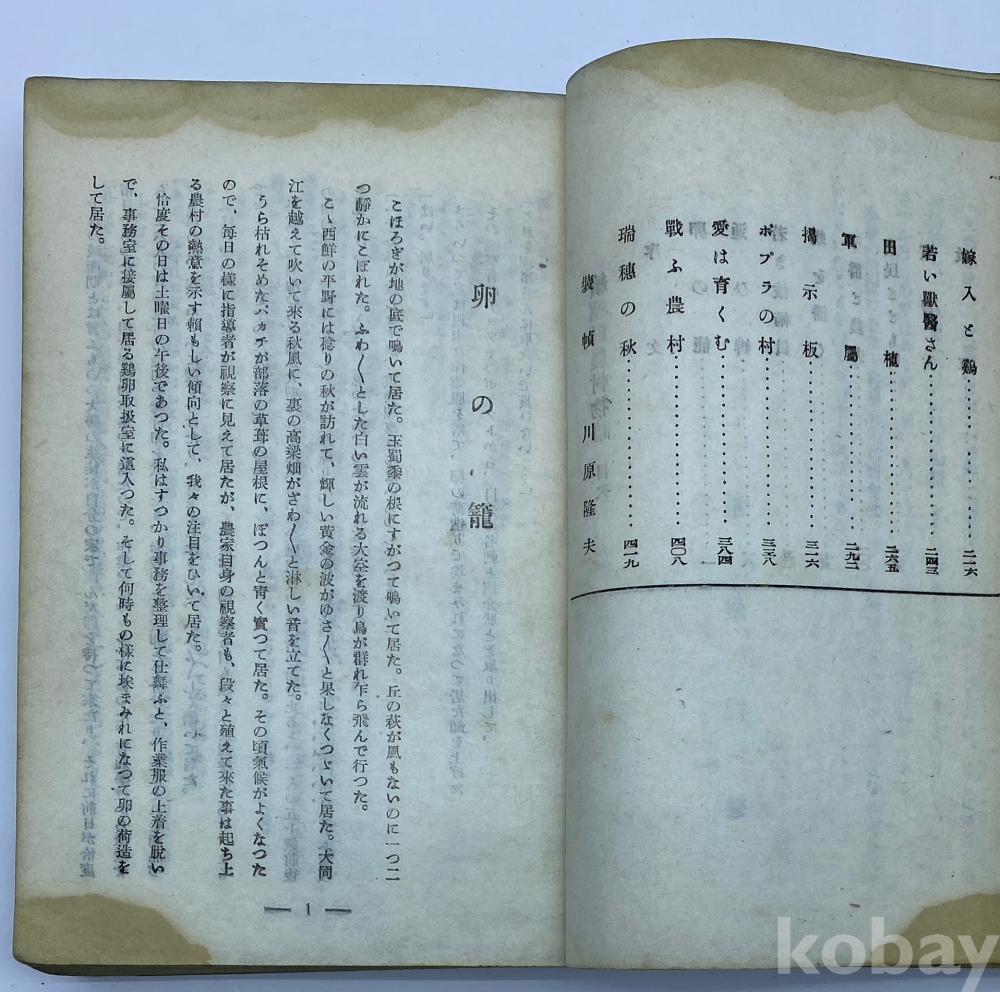 嫁入と鷄…………二一六
若い獸醫さん…………二四三
田植…………二六五
軍屬…………二九二
揭示板…………三一六
ポプラの村…………三五八
愛は育くむ…………三八四
戰ふ農村…………四〇八
瑞穗の秋…………四一九
裝幀 川原隆夫
卵の籠
こほろぎが地の底で鳴いて居た。玉蜀黍の根にすがつて鳴いて居た。丘の萩が風もないのに一つ二
つ靜かにこぼれた。ふわ〳〵とした白い雲が流れる大空を渡り鳥が群れ乍ら飛んで行つた。
こゝ西鮮の平野には稔りの秋が訪れて、輝しい黄金の波がゆさ〳〵と果しなくつゞいて居た。大同
江を越えて吹いて來る秋風に、裏の高粱畑がざわ〳〵と淋しい音を立てた。
うら枯れそめたパカチが部落の草葺の屋根に、ぽつんと靑く實つて居た。その頃氣候がよくなつた
ので、毎日の樣に指導者が視察に見えて居たが、農家自身の視察者も、段々と殖えて來た事は起ち上
る農村の熱意を示す賴もしい傾向として、我々の注目をひいて居た。
恰度その日は土曜日の午後であつた。私はすつかり事務を整理して仕舞ふと、作業服の上着を脫い
で、事務室に接屬して居る鷄卵取扱室に這入つた。そして何時もの樣に埃まみれになつて卵の荷造を
して居た。
— 1 —
kobay